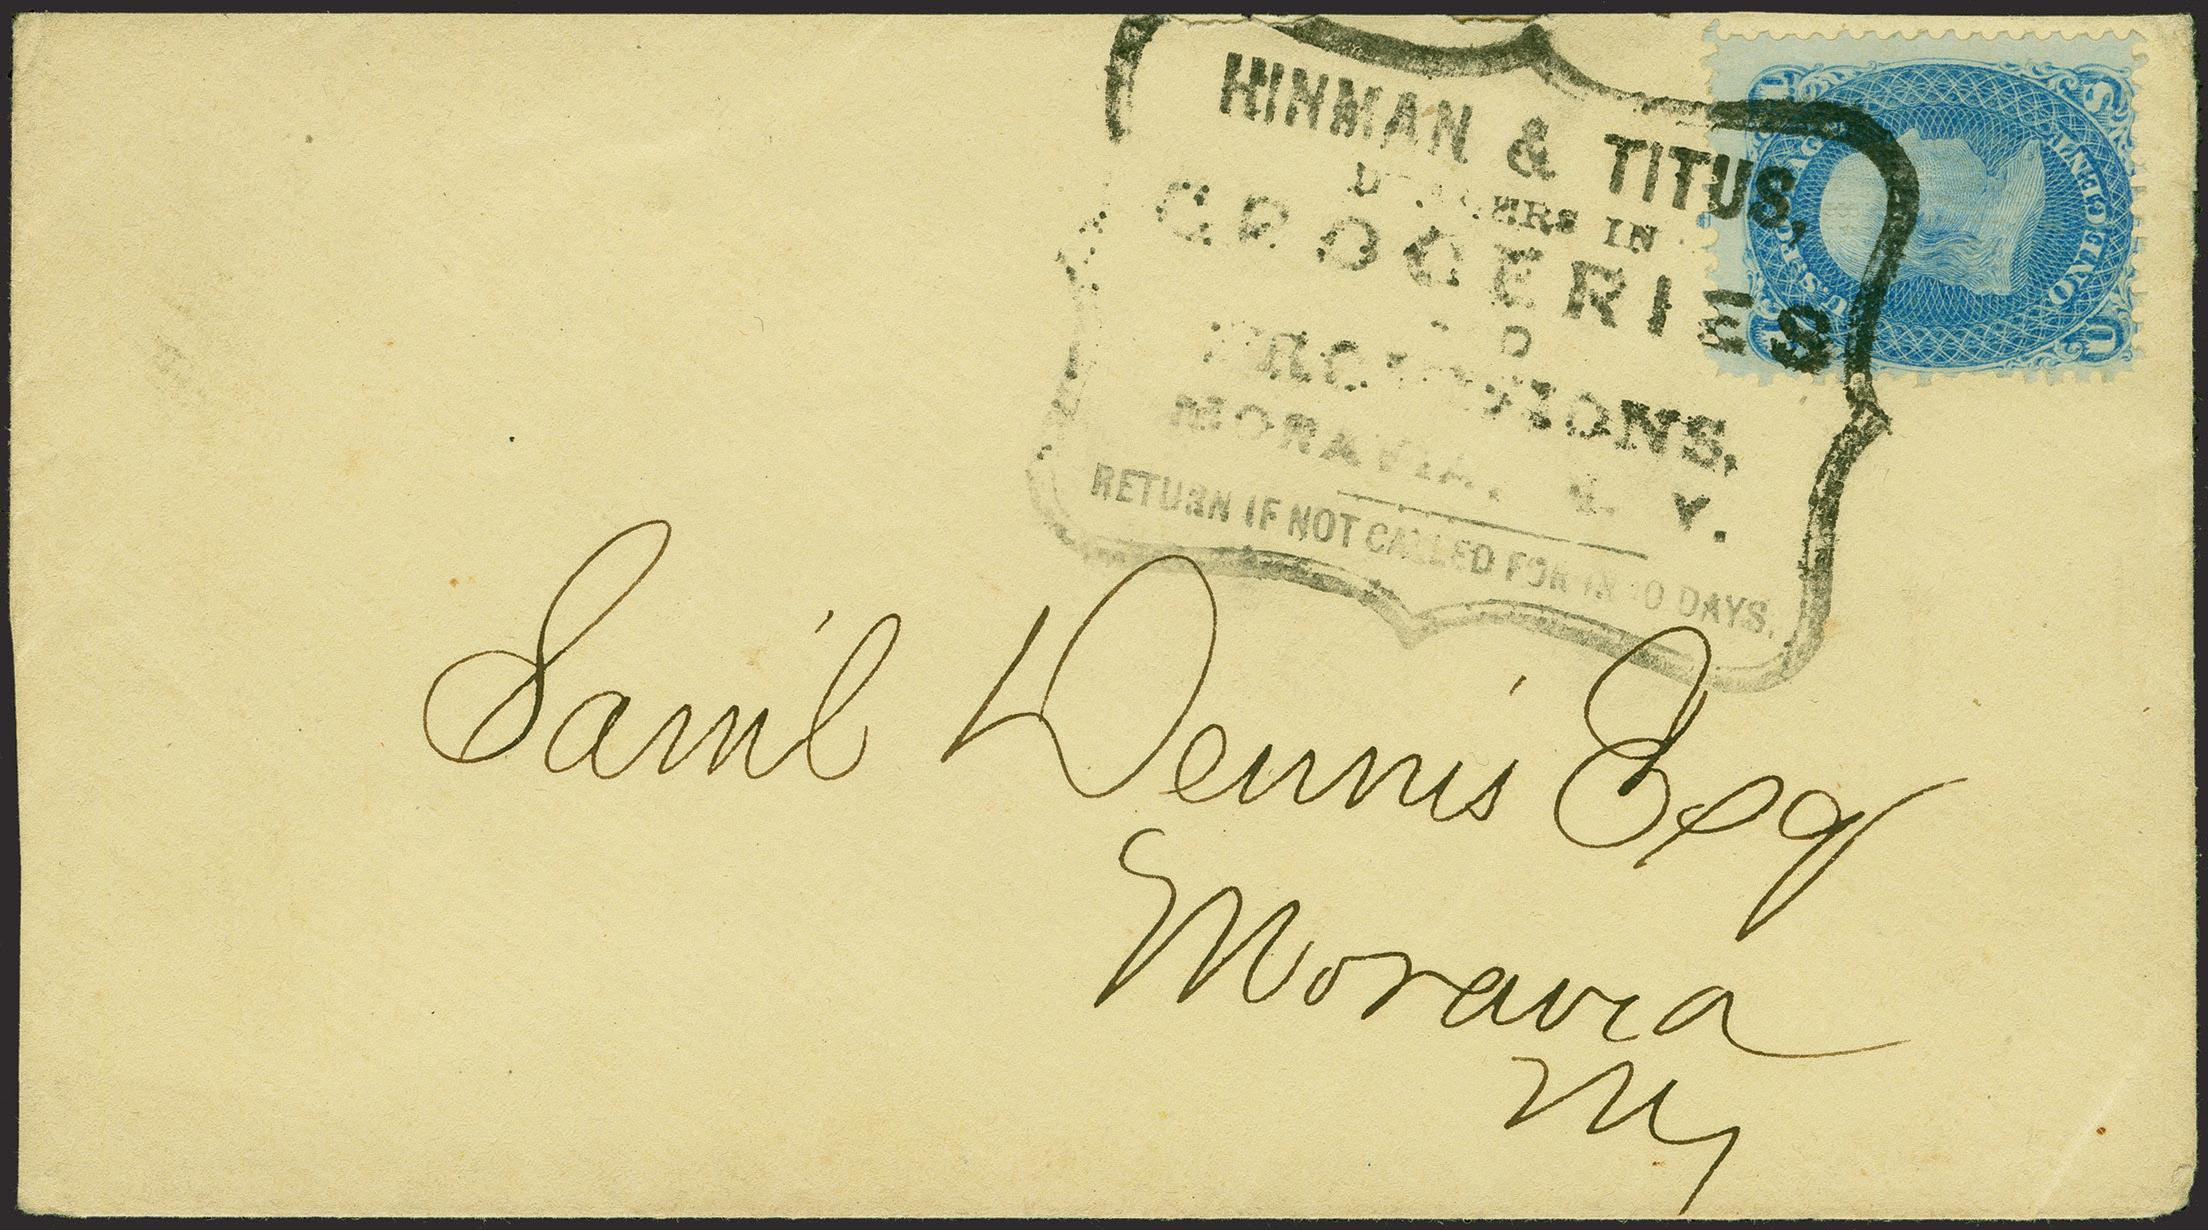 HINMAN & TITUS,
DEALERS IN
GROCERIES
PROVISIONS,
MORAVIA, N. Y.
RETURN IF NOT CALLED FOR IN 10 DAYS.
U.S. POSTAGE
ONE CENT
U S
Sam'l Dennis Esq
Moravia
NY